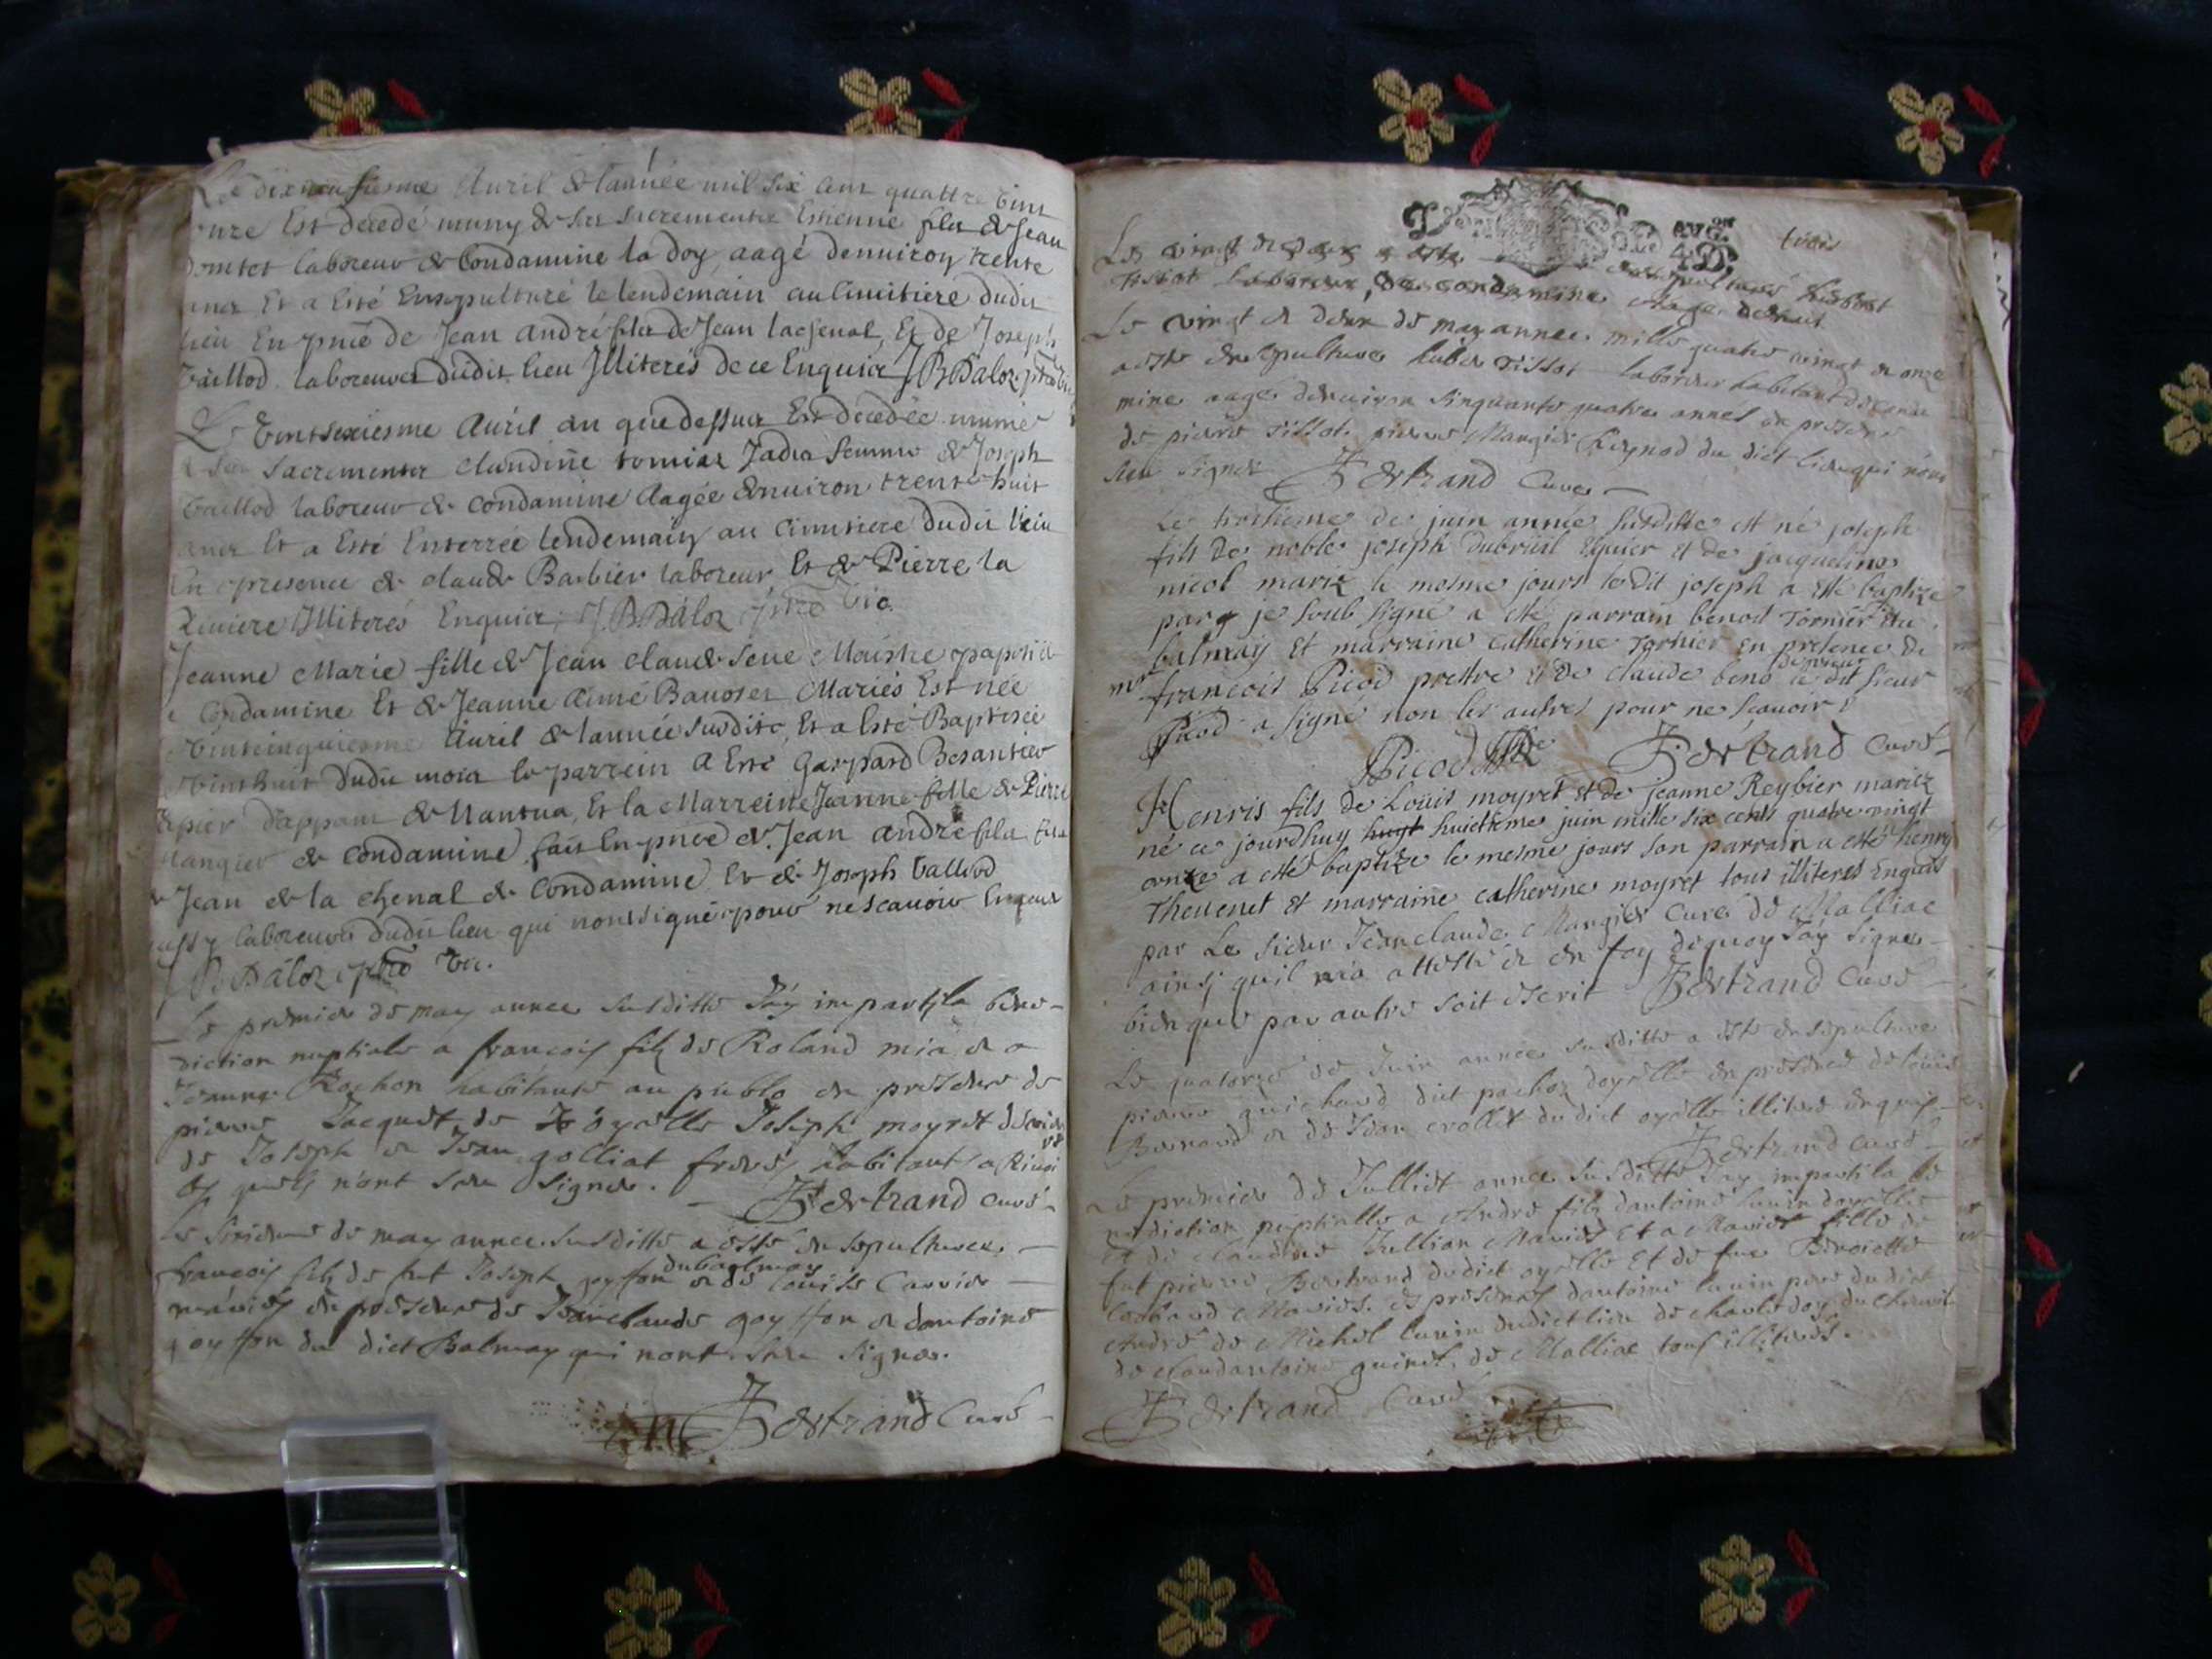 Le dixneufiesme Auril & lannée mil six cent quattre vint
onze Est decedé muny & ses sacrementz Estienne filz & Jean
laboreur & Condamine la doy, aagé denuiron trente
annes Et a Esté Ensepulturé le lendemain au Cimitiere dudit
lieu En pnce de Jean André filz de Jean lachenal, Et de Joseph
Vaillod laboreurs dudit lieu Illiterés de ce Enquis J B Baloz ptre vic.
Le Vintsixiesme Auril an que dessus Est decedée munie
& ses sacrementz claudine tornier Jadis femme & Joseph
Vaillod laboreur & condamine Aagée denuiron trente huit
annes Et a Esté Enterrée lendemain au cimitiere dudit lieu
En presence & claude Barbier laboreur Et & Pierre la
Riuiere Illiterés Enquis; J B Baloz ptre vic.
Jeanne Marie fille & Jean claude seue Maistre papetié
Condamine Et & Jeanne Aimé Bauoset Mariés Est née
Vintcinquiesme Auril & lannée susdite, Et a Esté Baptisée
Vinthuit dudit mois le parrein a Esté Gaspard Besantier
& Nantua, Et la Marreine Jeanne fille & Pierre
Mangier & condamine fait En pnce & Jean andré filz feu
& Jean & la chenal & Condamine Et & Joseph Vaillod
aussy laboreurs dudit lieu qui nont signé pour ne scauoir Enquis
J B Baloz ptre vic.
Le premier de may annee susditte Jay imparti la bene-
diction nuptiale a francois filz de Roland mia et a
Jeanne Rochon habitants au publo en presence de
pierre Jacquet de oyselle Joseph moyret
de Joseph et Jean golliat freres habitants a
quels nont sceu signer. Bertrand curé
Le de may annee susditte a esté ensepulturer
dubalmay
francois filz de fut Joseph goyffon et de louise Carrier
mariés en presence de Jeanclaude goyffon et dantoine
goyffon du dict Balmay qui nont sceu signer.
Bertrand Curé
GEN
4 D.
trois
Le vingt et deux a esté ensepulturé hubert
Tissot laboreur, de condamine Aagé
Le vingt et deux de may annee mille quatre vingt et onze
a esté ensepulturer huber Tissot laboreur habitant de conda
mine aagé denuiron sinquante quatre annes en presence
de pierre Tissot pierre Mangier du dict lieu qui nont
sceu signer Bertrand Curé
Le troisieme de juin année susditte est né joseph
fils de noble joseph dubreüil Equier et de jacqueline
nicol mariz le mesme jours ledit joseph a esté baptizé
par je soub signé a esté parrain benoit Tornier du
balmay Et marraine catherine Tornier en presence de
mre francois Picod prestre et de claude beno le dit sieur
Picod a signé non les autres pour ne scauoir
Picod ptre Bertrand Curé
Henris fils de Loüis moyret et de jeanne Reybier mariez
né ce jourdhuy huyt huictieme juin mille six cents quatre vingt
onze a esté baptize le mesme jours son parrain a esté henry
Theuenet et marraine catherine moyret tous illiteres Enquis
par Le sieur Jeanclaude Mangier Curé de Malliac
ainsj quil ma attesté et en foy dequoy Jay signé
bien que par autre soit escrit Bertrand Curé
Le quatorze de Juin annee susditte a esté ensepulturer
pierre guichard dict pochoz doyselle en presence de louis
Bernard et de Jean crollet dudict oyselle illiteres enquis
Bertrand curé
Le premier de Julliet annee susditte Jay imparti la be
nediction nuptialle a Andre filz dantoine
et de claudine Jullian Mariés Et a Marie fille de
fut pierre Bertrand dudict oyselle Et de fue Benoiette
Mariés. Es presences dantoine pere dudict
Andre de Michel dudict lieu de charle
de claudantoine guinet de Malliac tous illiteres.
Bertrand Curé